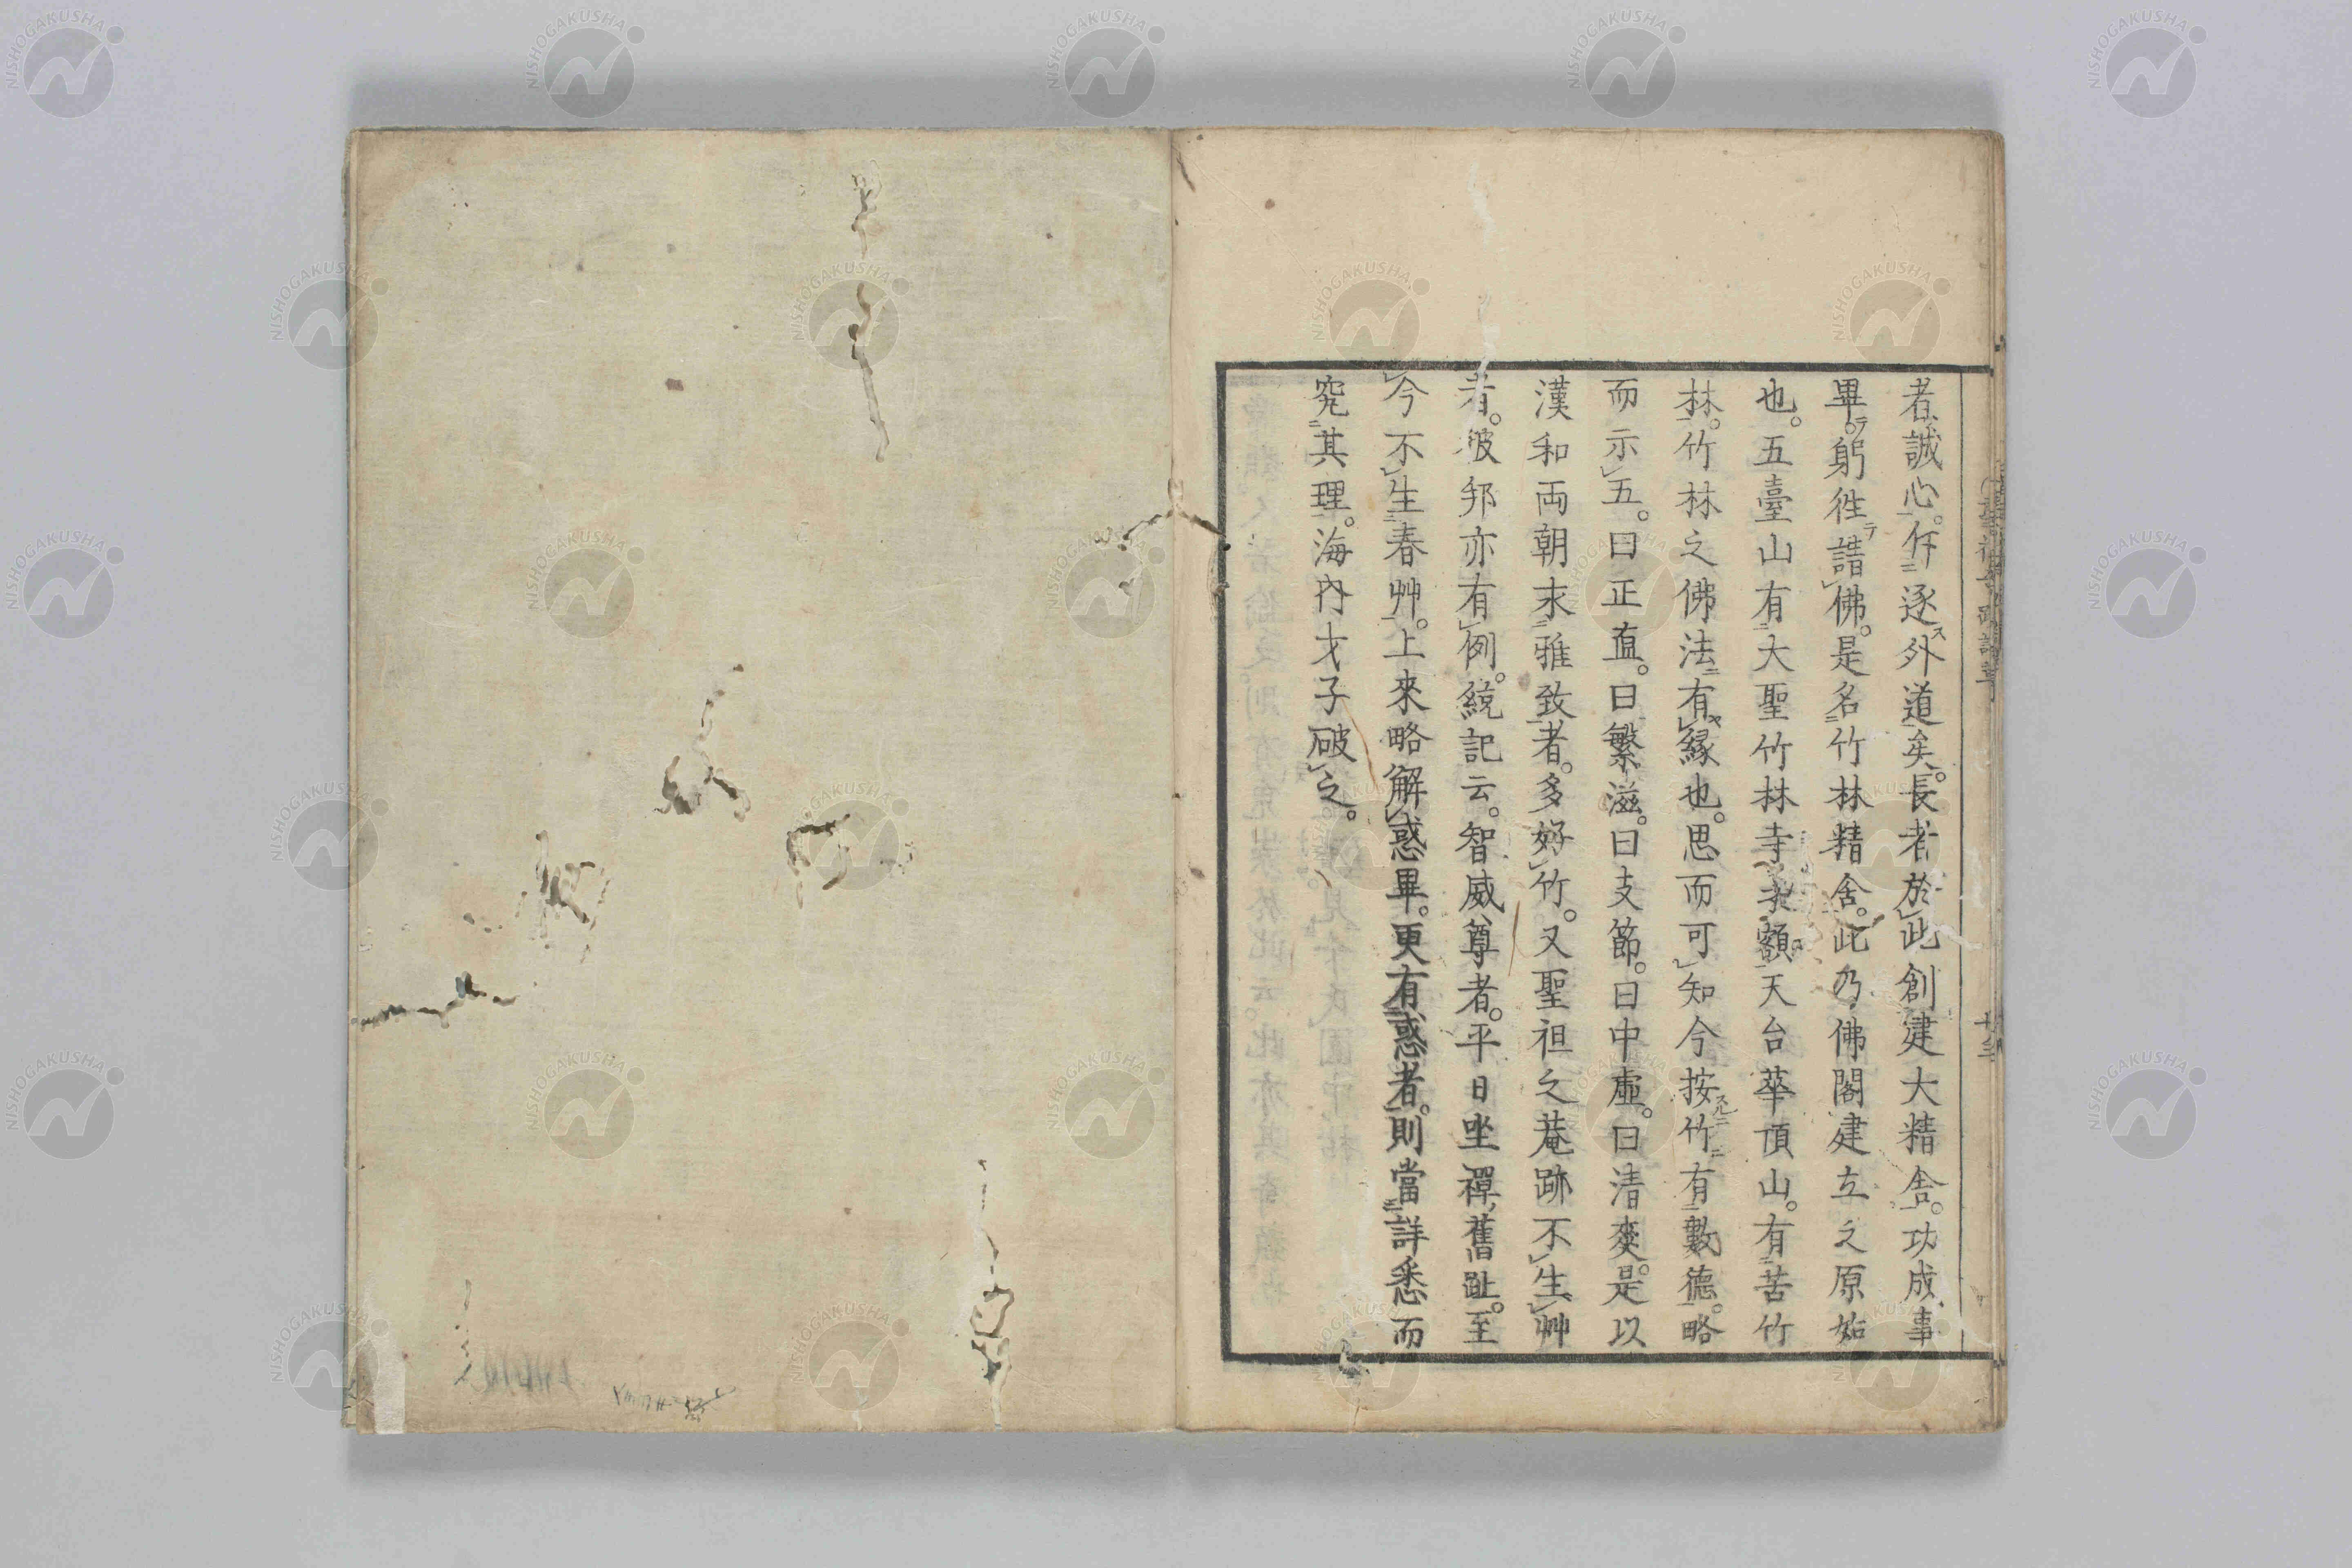 者誠心。仵逐外道矣。長者於此創建大精舎。功成事
畢。躬徃諎佛。是名竹林精舎。此乃佛閣建立之原始
也。五臺山有大聖竹林寺表額天台華頂山。有苦竹
林。竹林之佛法有縁也。思而可知今按竹有數德。略
而示五。曰正直。曰繁滋。曰支節。曰中虛。曰清爽。是以
漢和両朝末雅致者。多好竹。又聖祖之菴跡不生艸
者。彼邦亦有例。統記云。智威尊者。平日坐禪舊趾。至
今不生春艸。上來略解惑畢。更有惑者。則當詳悉而
究其理。海內才子破之。
NISHOGAKUSHA